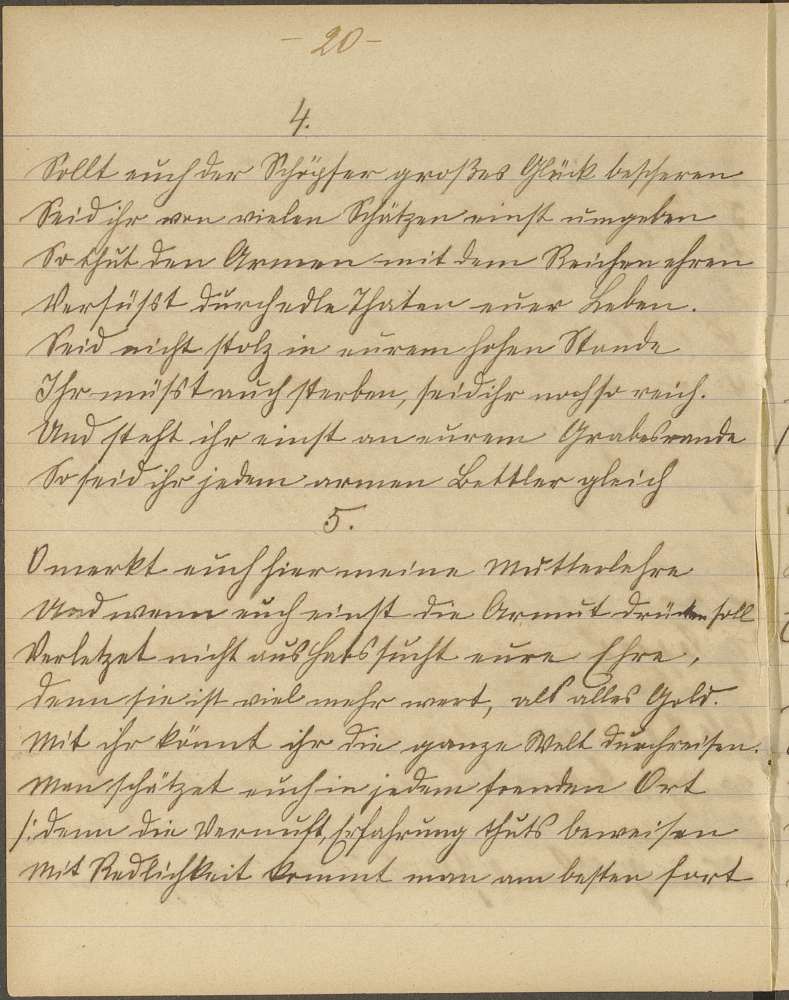 - 20 -
4.
Sollt euch der Schöpfer großes Glück bescheren
Seid ihr von vielen Schätzen einst umgeben
So thut den Armen mit dem Reichen ehren
Versüßt durch edle Thaten euer Leben.
Seid nicht stolz in eurem hohen Stande
Ihr müßt auch sterben, seid ihr noch so reich.
Und steht ihr einst an eurem Grabesrande
So seid ihr jedem armen Bettler gleich
5.
O merkt euch hier meine Mutterlehre
Und wenn euch einst die Armut drücken soll
Verletzet nicht aus Habssucht eure Ehre,
denn sie ist viel mehr wert, als alles Gold.
Mit ihr könnt ihr die ganze Welt durchreisen.
Man schätzet euch in jedem fremden Ort
/: denn die Vernuft, Erfahrung thuts beweisen
Mit Redlichkeit kommt man am besten fort